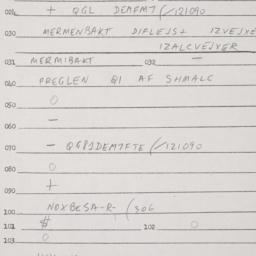 026 + QGL DEMFM7 (/121090
030 MERMENBAKT DIFLEJS+ IZVEJXE
IZALCVEJXER
031 MERMIBAKT 032 —
040 PREGLEN QI AF SHMALC
050 O
060 —
070 — QGPIDEM7FTE (/121090
080 O
090 +
100 NDXBESA-R- (306
101 $ 102 O
103 O